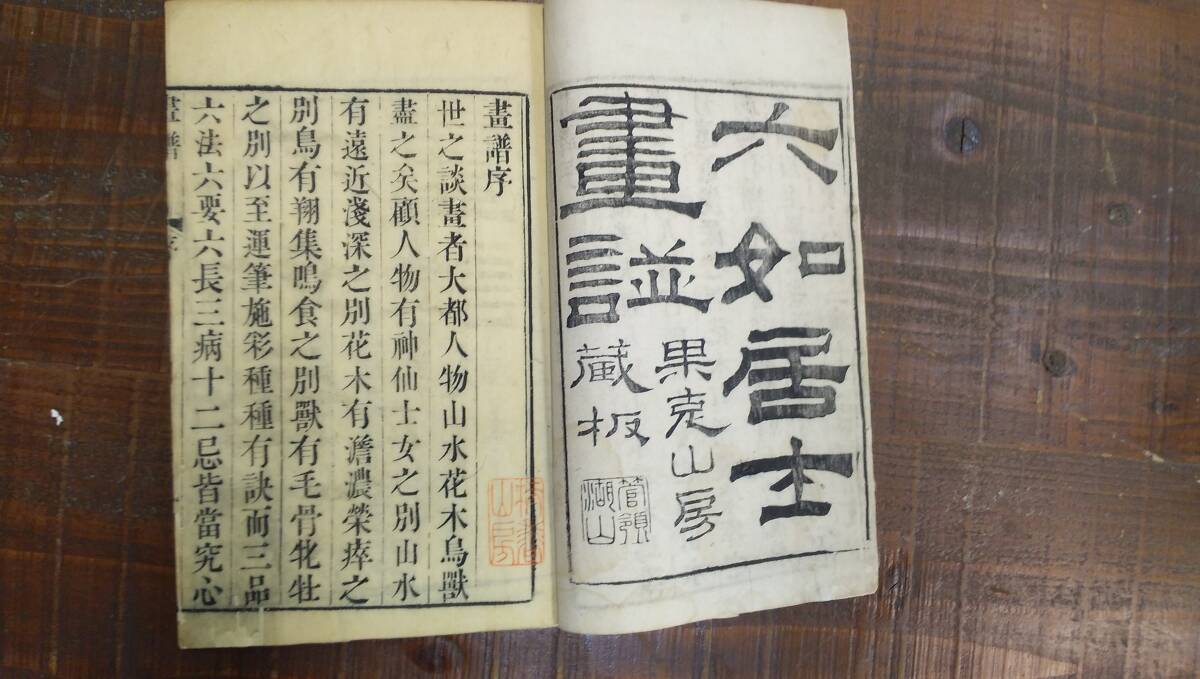 六如居士
畫譜
果克山房
藏板
管領
湖山
畫譜序
世之談畫者大都人物山水花木鳥獸
盡之矣顧人物有神仙士女之別山水
有遠近淺深之別花木有澹濃榮瘁之
別鳥有翔集鳴食之別獸有毛骨牝牡
之別以至運筆施彩種種有訣而三品
六法六要六長三病十二忌皆當究心
畫譜
序
山房